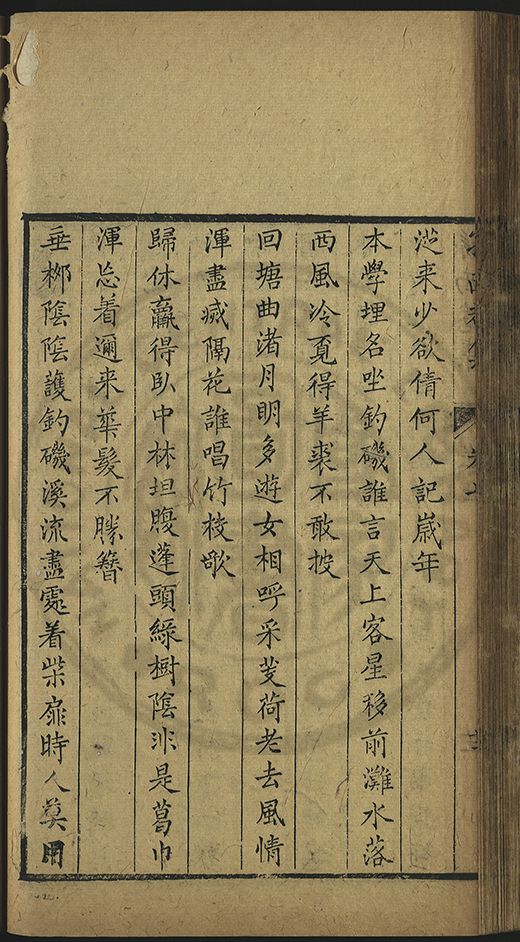 從来少欲倩何人記嵗年
本學埋名坐釣磯誰言天上客星移前灘水落
西風冷覔得羊裘不敢披
回塘曲渚月明多遊女相呼采芰荷老去風情
渾盡减隔花誰唱竹枝歌
歸休贏得臥中林坦腹蓬頭緑樹陰非是葛巾
渾忘着邇来華髮不勝簪
垂栁陰陰護釣磯溪流盡處着柴扉時人莫用